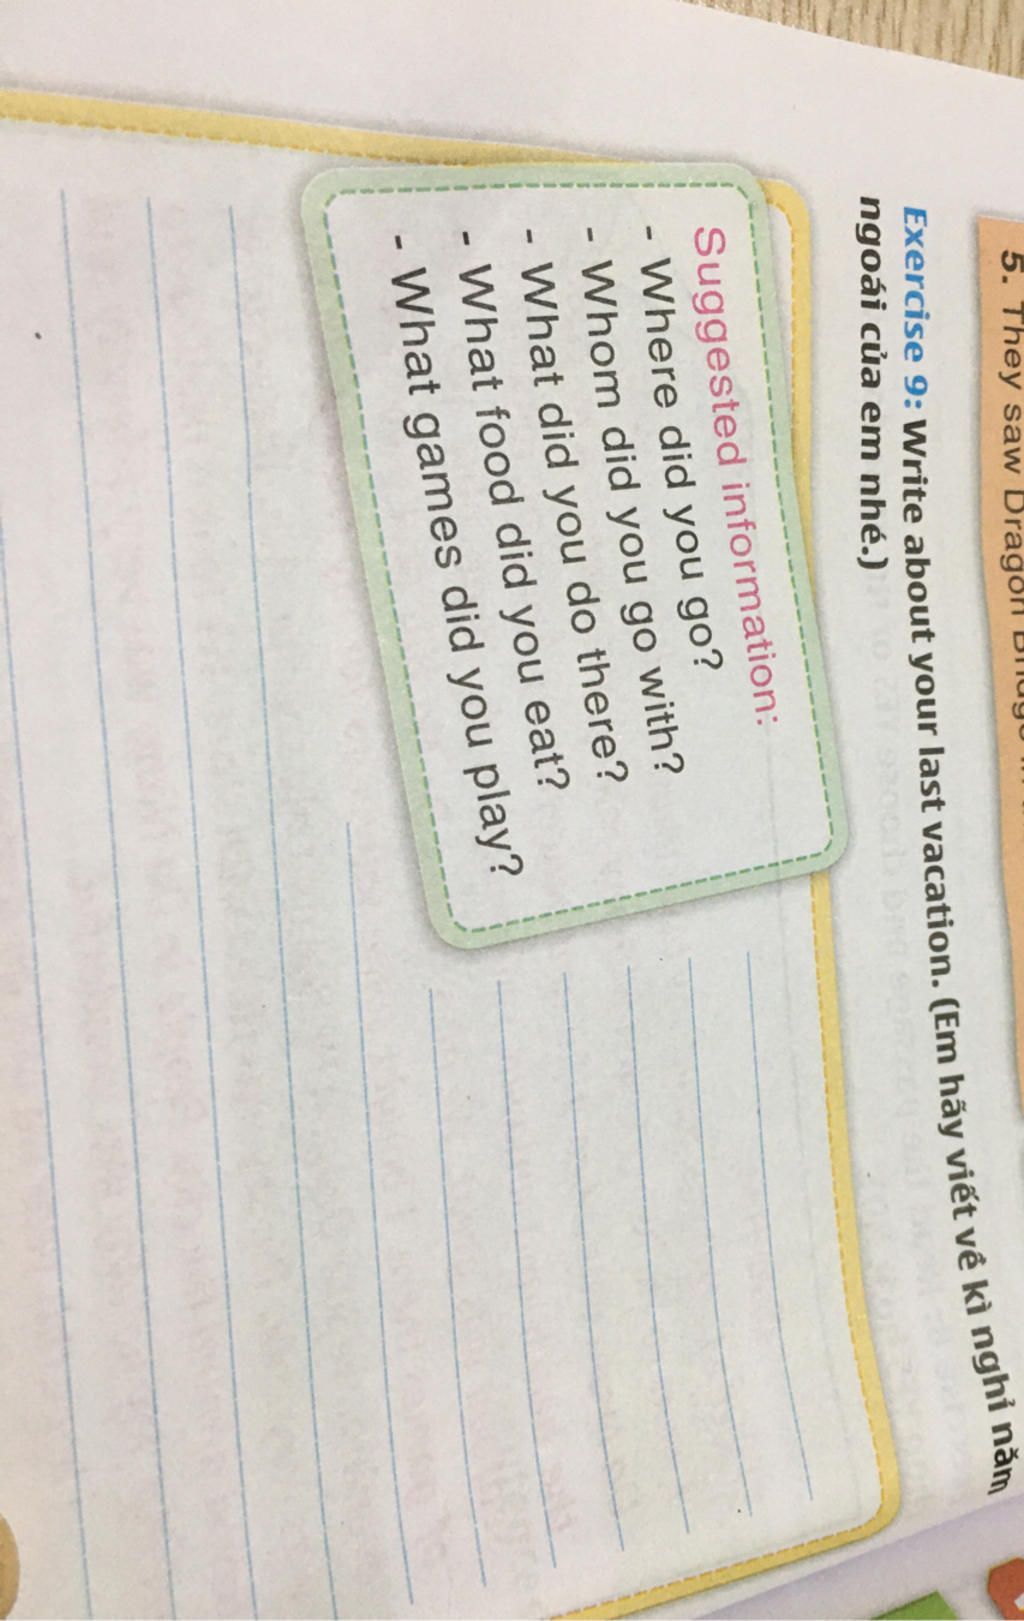 5. They saw Dragon
Exercise 9: Write about your last vacation. (Em hãy viết về kì nghỉ năm
ngoái của em nhé.)
Suggested information:
- Where did you go?
- Whom did you go with?
- What did you do there?
- What food did you eat?
- What games did you play?